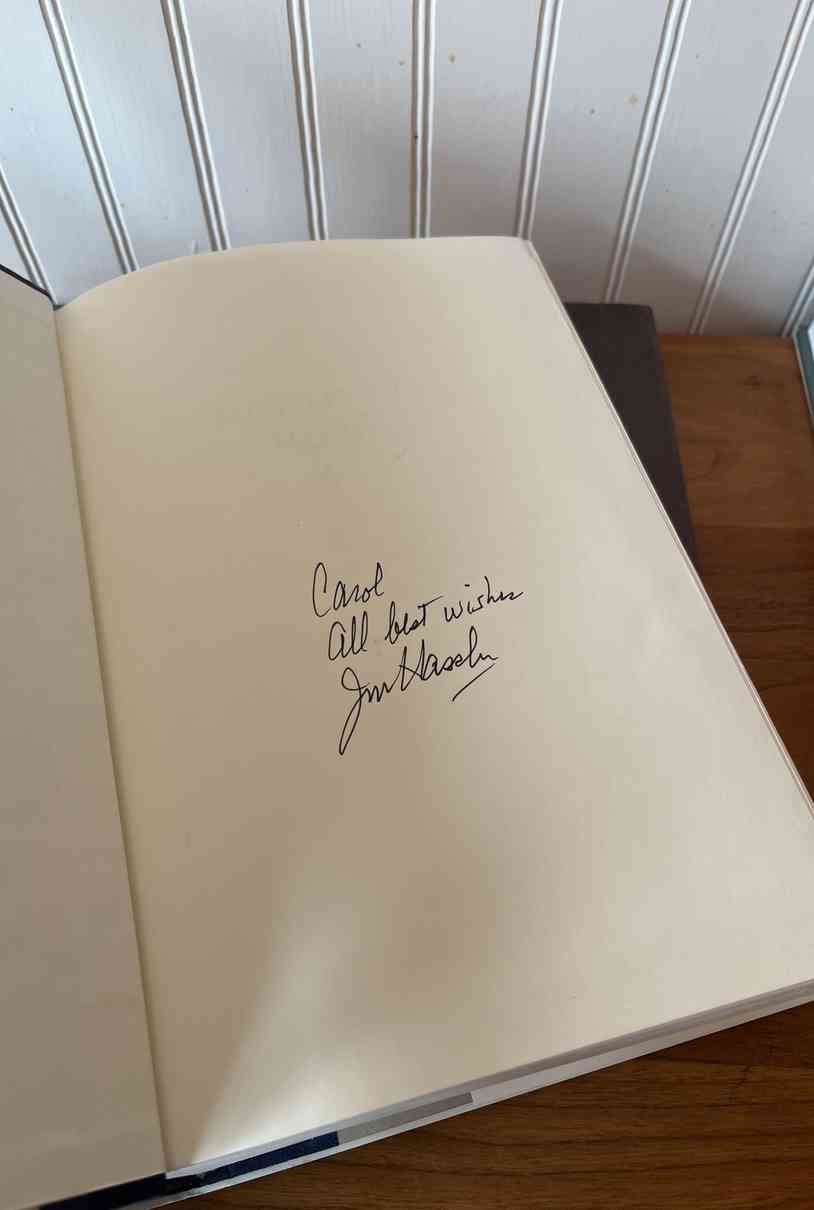 Carol
All best wishes
Jim Hassler